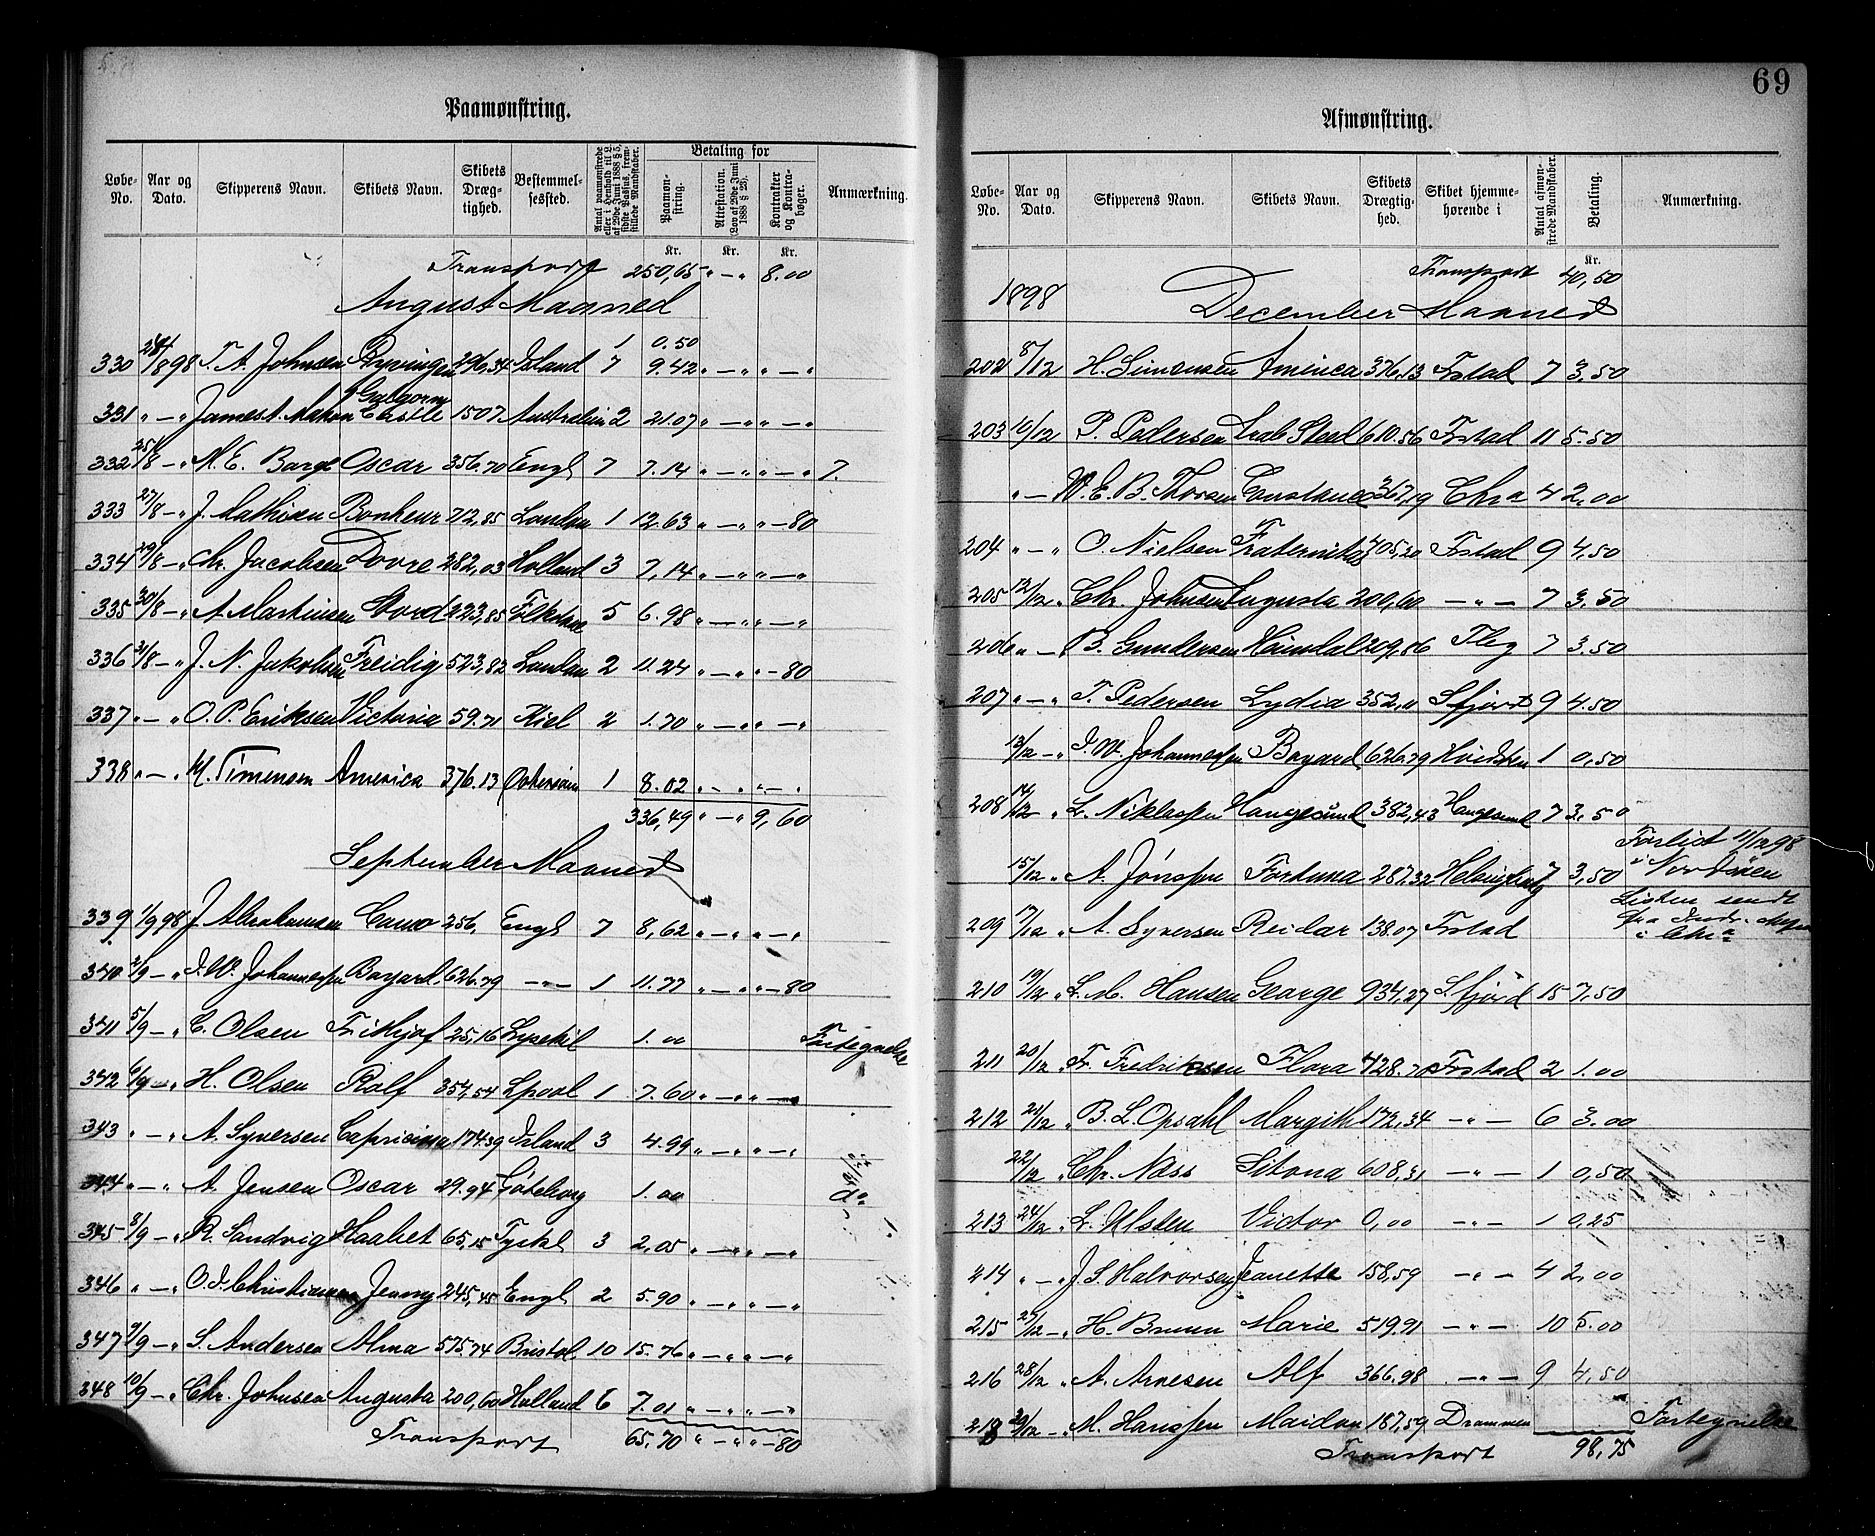 Paamønstring.
Løbe-No. Aar og Dato. Skipperens Navn. Skibets Navn. Skibets Dræg-tighed. Bestemmel-sessted. Antal paamønstrede eller i Henhold til L. af 29de Juni 1888 § 5, sidste Passus, frem-stillede Mandskaber. Betaling for Paamøn-string. Attestation. (Lov af 29de Juni 1888 § 25). Kontrakter og Kontra-bøger. Anmærkning.
Kr. Kr. Kr.
Transport 250,65 " — " 8.00
August Maaned
1 0.50
330 /8 98 T. A. Johnsen Ryvingen 296.54 Island 7 9.42 " — " " — "
331 " — " James A. Castle 1507 Australien 2 21.07 " — " " — "
332 25/8 — " N. E. Barge Oscar 356.70 Engl 7 7.14 " — " " — " 7.
333 27/8 — " J. Mathisen Bonheur 712,85 London 1 12.63 " — " " — 80
334 29/8 — " Chr. Jacobsen Dovre 282,03 Holland 3 7,14 " — " " — "
335 30/8 — " A. Martinsen Stord 223,85 5 6.98 " — " " — "
336 31/8 — " J. N. Jakobsen Freidig 523,83 London 2 11.24 " — " " — 80
337 " — " O. P. Eriksen Victoria 59.71 Kiel 2 1.70 " — " " — "
338 " — " H. Simensen America 376.13 1 8.02 " — " " — "
336,49 " — " 9,60
September Maaned
339 1/9 98 J. Abrahamsen Cano 256, Engl 7 8,62 " — " " — "
340 2/9 — " J. W. Johannessen Bayard 626.79 — " — 1 11.77 " — " " — 80
341 5/9 — " C. Olsen Frithjof 25,16 Lysekil 1.00 Fortegnelse
342 6/9 — " H. Olsen Rolf 354,54 Lpool 1 7.60 " — " " — "
343 " — " A. Syversen Capricima 174.39 Island 3 4.99 " — " " — "
344 " — " A. Jensen Oscar 29.94 Göteborg 1.00 do
345 8/9 — " R. Sandvig Haabet 65,15 Tyskl 3 2,05 " — " " — "
346 " — " O. J. Christiansen Jenny 245,45 Engl 2 5.90 " — " " — "
347 9/9 — " S. Andersen Alma 575.74 Bristol 10 15.76 " — " " — "
348 10/9 — " Chr. Johnsen Augusta 200,60 Holland 6 7.01 " — " " — "
Transport 65.70 " — " " — 80
69
Afmønstring.
Løbe-No. Aar og Dato. Skipperens Navn. Skibets Navn. Skibets Drægtig-hed. Skibet hjemme-hørende i Antal afmøn-strede Mandskaber. Betaling. Anmærkning.
Kr.
Transport 40,50
1898 December Maaned
202 8/12 H. Simensen America 376,13 Fstad 7 3,50
203 10/12 P. Pedersen Steed 610.56 Fstad 11 5.50
" — W. E. B. Thorsen Constance 367,19 Chra 4 2,00
204 " — " O. Nielsen Fraternitas 405,20 Fstad 9 4.50
205 12/12 " Chr. Johnsen Augusta 200,60 — " — 7 3.50
206 " — B. Gundersen Heimdal 209,86 7 3.50
207 " — " T. Pedersen Lydia 352,11 Sfjord 9 4.50
13/12 — " J. W. Johannessen Bayard 626.79 1 0,50
208 14/12 " L. Niklassen Haugesund 382,43 Haugesund 7 3.50
15/12 " — A. Jönsson Fortuna 287.32 Helsingborg 7 3,50 Forlist 11/12 98 i Nordsöen
209 17/12 " A. Syversen Reidar 138.07 Fstad Listen sendt fra i Chra
210 19/12 " L. M. Hansen George 934,27 Sfjord 15 7,50
211 20/12 " Fr. Fredriksen Flora 428.70 Fstad 2 1.00
212 21/12 " B. L. Opsahl Margith 172,34 — " — 6 3.00
22/12 " Chr. Næss Sitona 608,31 — " — 1 0,50
213 24/12 " L. Ulsten Victor 0,00 — " — 1 0,25
214 " — " J. S. Halvorsen Jeanette 158,59 — " — 4 2,00
215 27/12 — " H. Bruun Marie 519,91 — " — 10 5.00
216 28/12 " A. Arnesen Alf 366.98 — " — 9 4,50
218 29/12 — " M. Hanssen 187,59 Drammen Fortegnelse
Transport 98,75